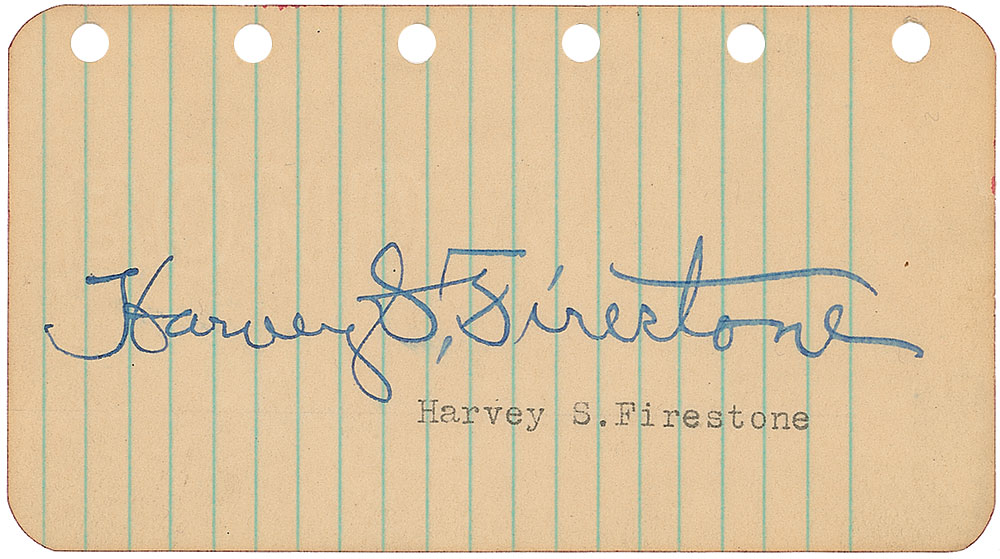 Harvey S. Firestone
Harvey S.Firestone